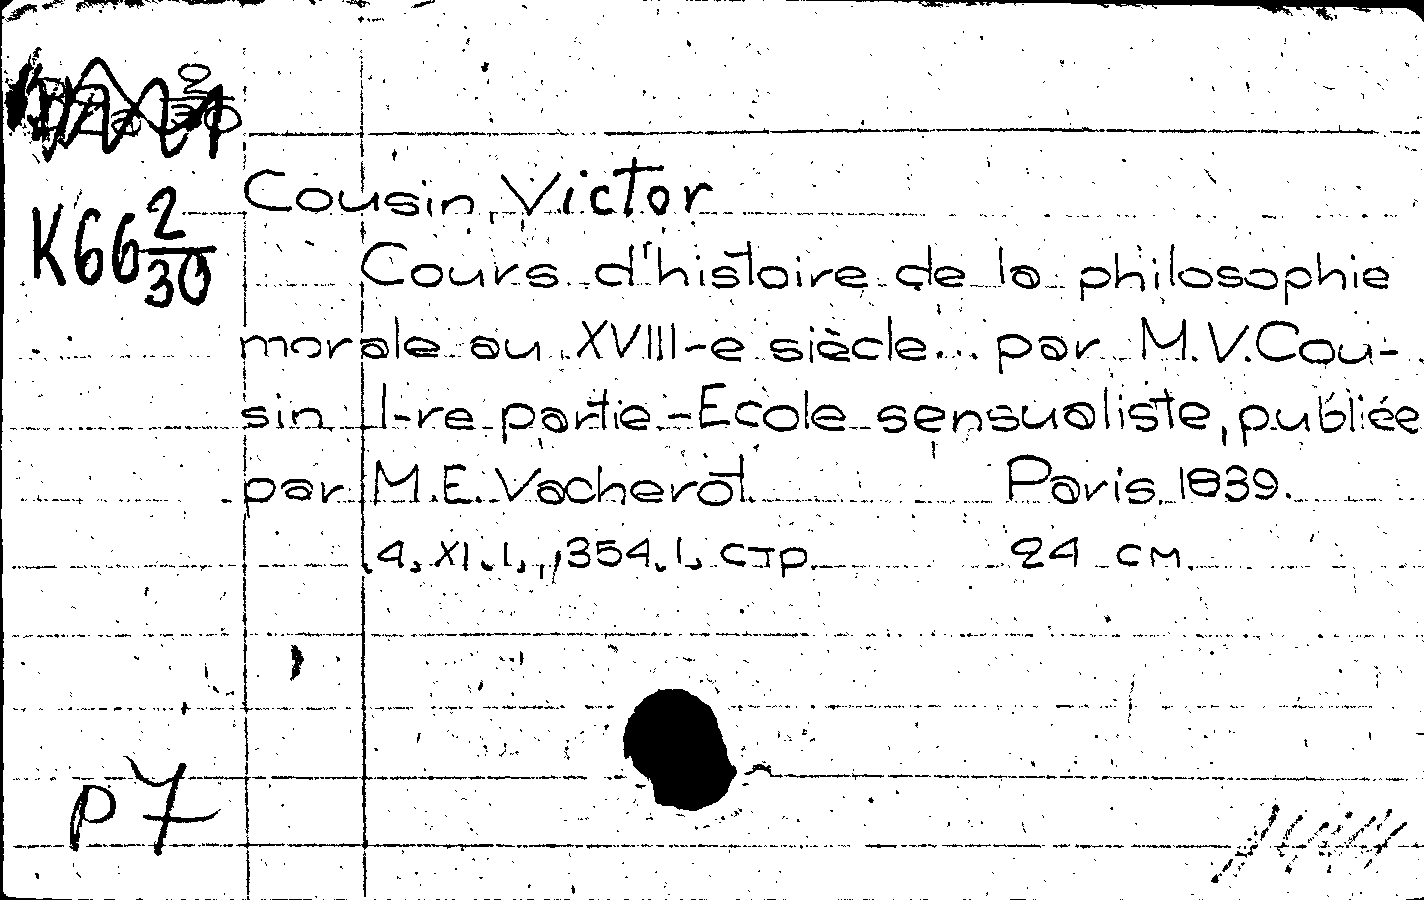 Cousin, Victor
К66 2/30
Cours d'histoire de la philosophie
morale au XVIII-e siècle... par M.V.Cou-
sin I-re partie-Ecole sensualiste, publiée
par M.E. Vacherot. Paris, 1839.
4, XI, 1, 354, 1, стр. 24 см.
р 7